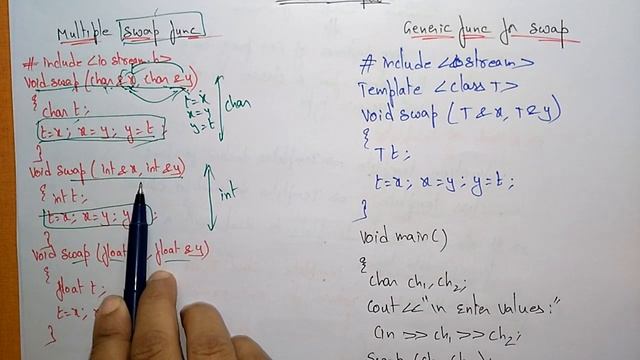 Multiple swap func
# include <iostream.h>
void swap (char &x, char &y)
{
char t;
t=x; x=y; y=t;
}
t=x
x=y
y=t
char
void swap (int &x, int &y)
{
int t;
t=x; x=y; y
;
}
int
void swap (float , float &y)
{
float t;
t=x;
}
Generic func for swap
# include <iostream>
Template <class T>
Void swap (T &x, T &y)
{
T t;
t=x; x=y; y=t;
}
Void main()
{
char ch1, ch2;
Cout <<"in Enter values:"
Cin >> ch1 >> ch2;